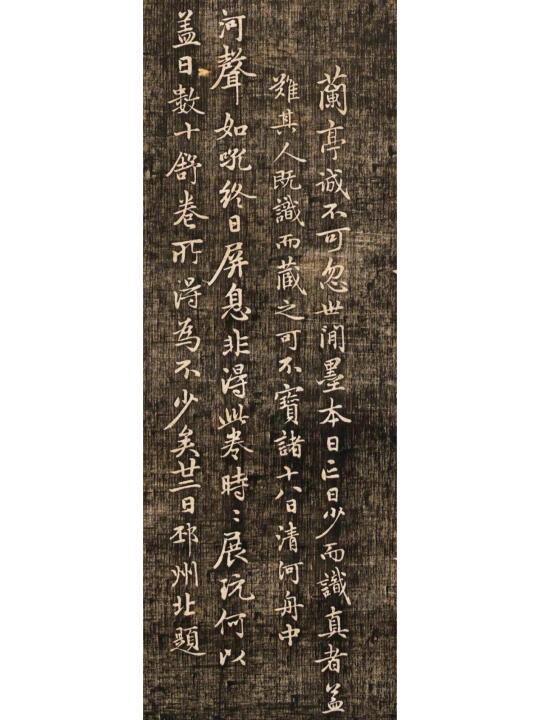 蘭亭誠不可忽世間墨本日亡日少而識真者盖
難其人既識而藏之可不寶諸十八日清河舟中
河聲如吼終日屏息非得此卷時〻展玩何以
盖日數十舒卷所得為不少矣廿二日邳州北題